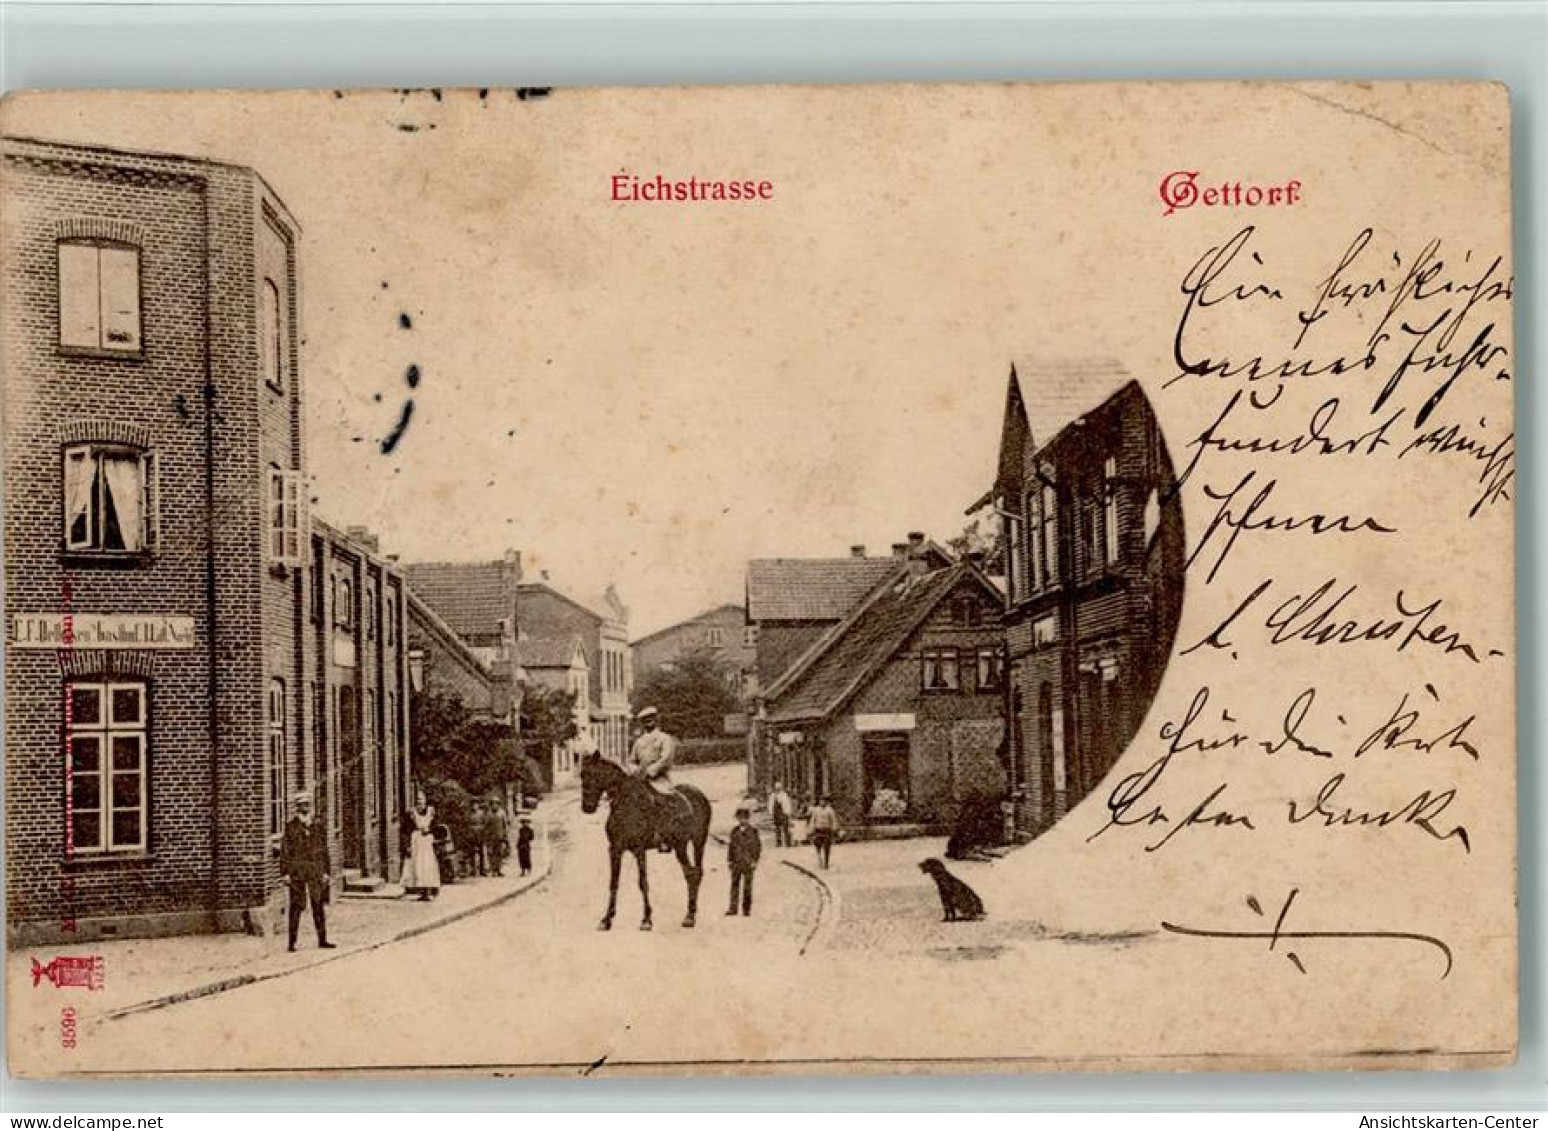 Eichstrasse
Gettorf
Ein fröhliches
neues Jahr-
hundert wünscht
Ihnen
L. Christen-
Für die Karte
besten Dank
8596
Ansichtskarten-Center